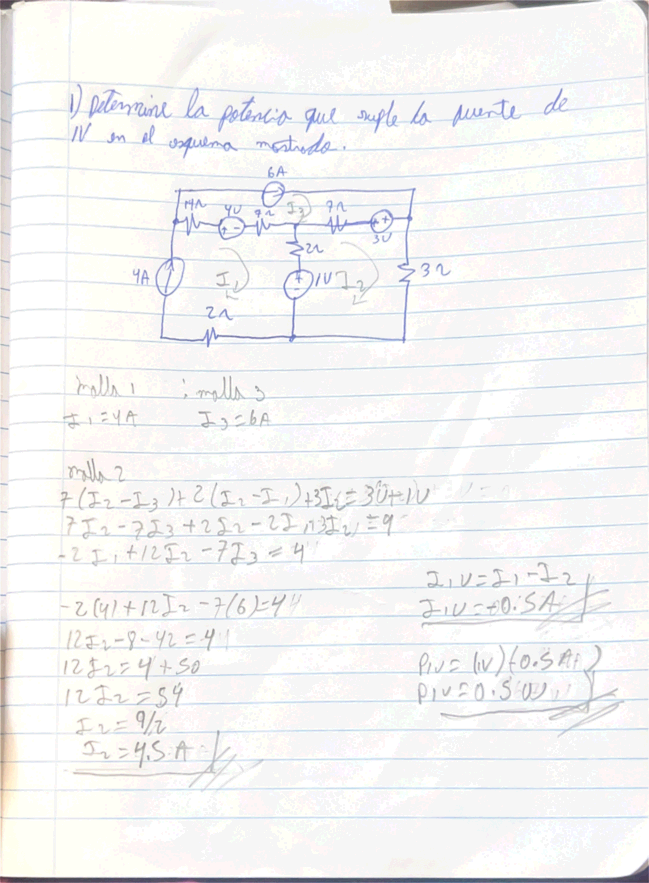 1) Determine la potencia que suple la fuente de
1V en el esquema mostrado.
6A
14Ω 4V 7Ω I3 7Ω 3V
2Ω
4A I1 1V I2 3Ω
2Ω
malla 1 ; malla 3
I1=4A I3=6A
malla 2
7(I2-I3)+2(I2-I1)+3I2=3V+1V
7I2-7I3+2I2-2I1+3I2=4
-2I1+12I2-7I3=4
-2(4)+12I2-7(6)=4
12I2-8-42=4
12I2=4+50
12I2=54
I2=9/2
I2=4.5A
I1V=I1-I2
I1V=-0.5A
P1V=(1V)(0.5A)
P1V=0.5W